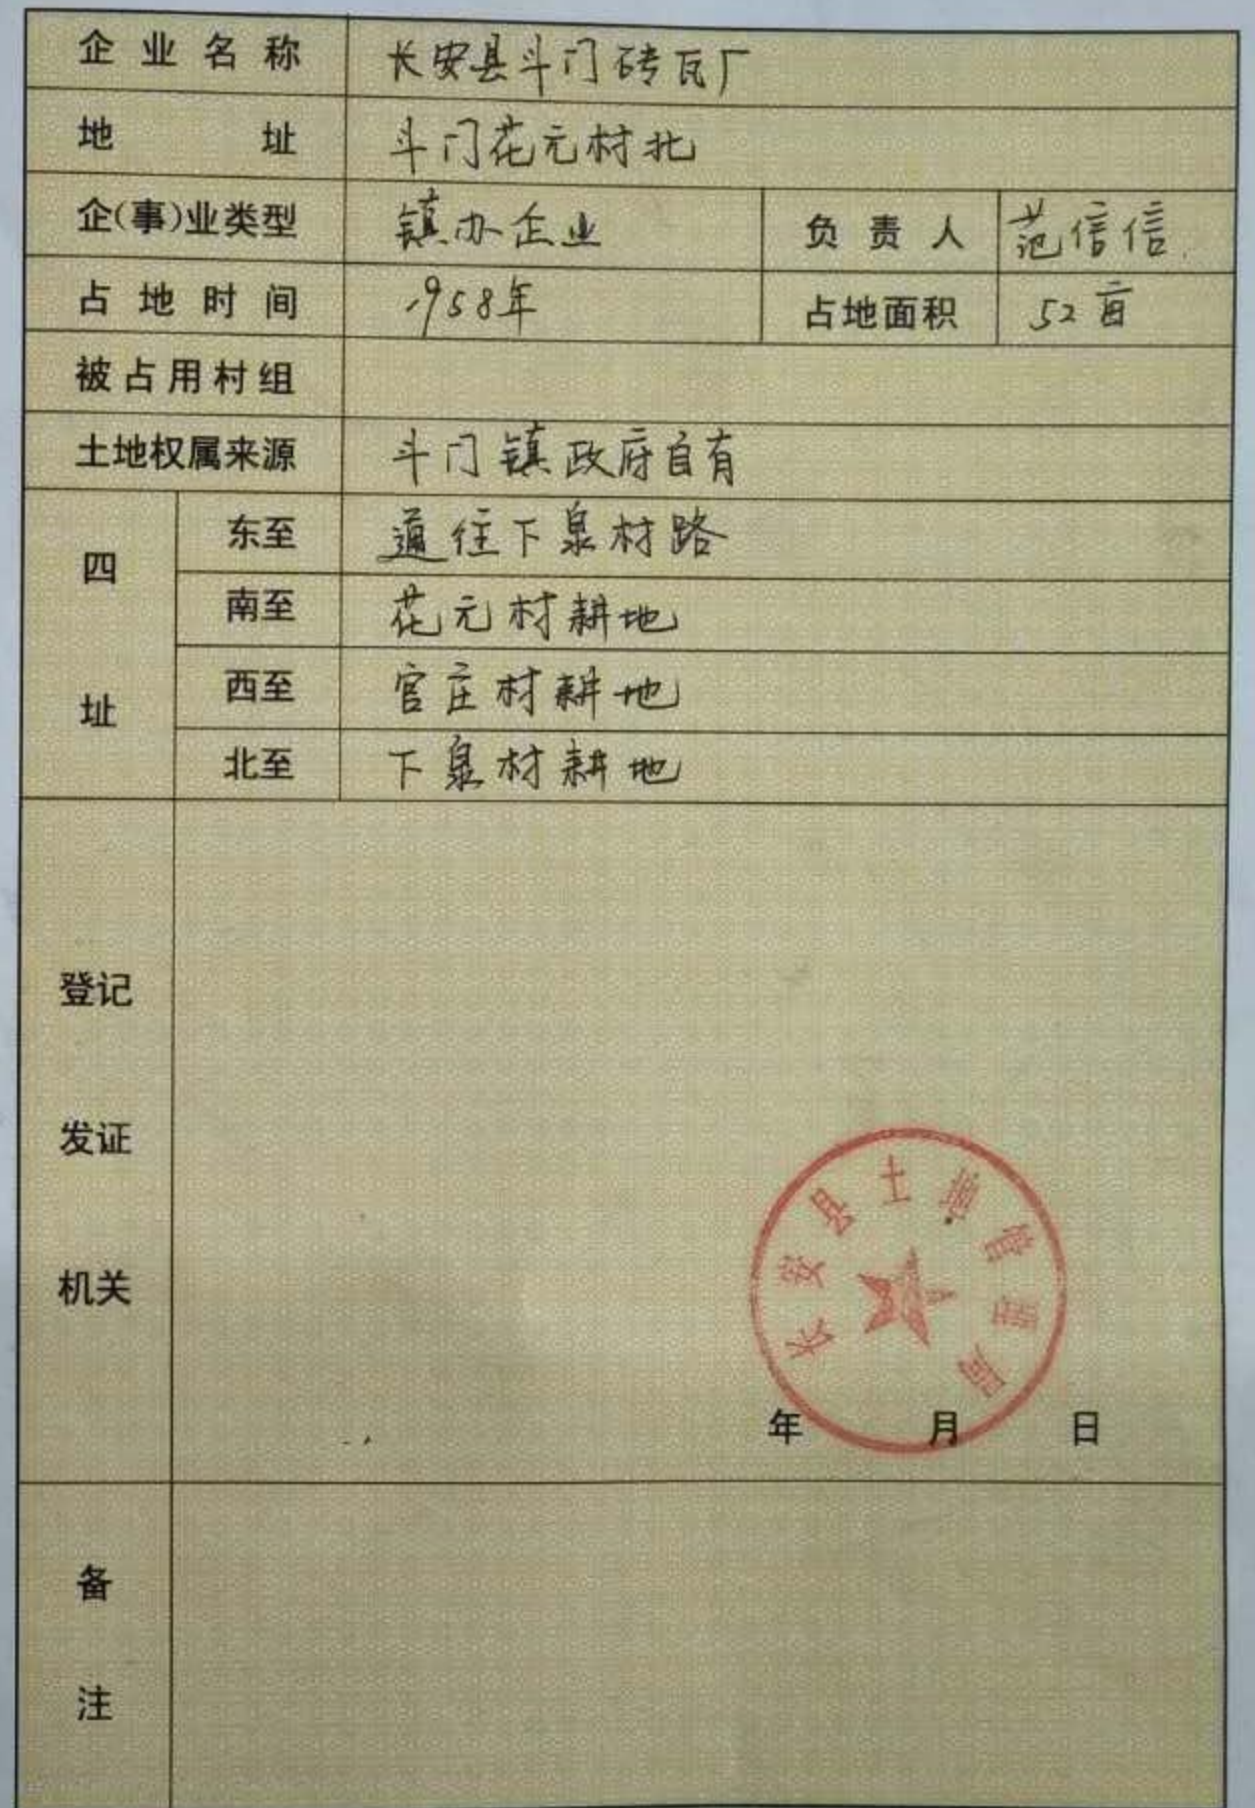 企业名称 长安县斗门砖瓦厂
地址 斗门花元村北
企(事)业类型 镇办企业 负责人 范信信
占地时间 1958年 占地面积 52亩
被占用村组
土地权属来源 斗门镇政府自有
四址 东至 通往下泉村路
南至 花元村耕地
西至 官庄村耕地
北至 下泉村耕地
登记
发证
机关
长安县土地管理局
年 月 日
备
注